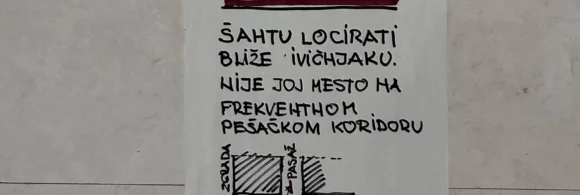 ŠAHTU LOCIRATI
BLIŽE IVIČNJAKU.
NIJE JOJ MESTO NA
FREKVENTNOM
PEŠAČKOM KORIDORU
ZGRADA
PASAŽ